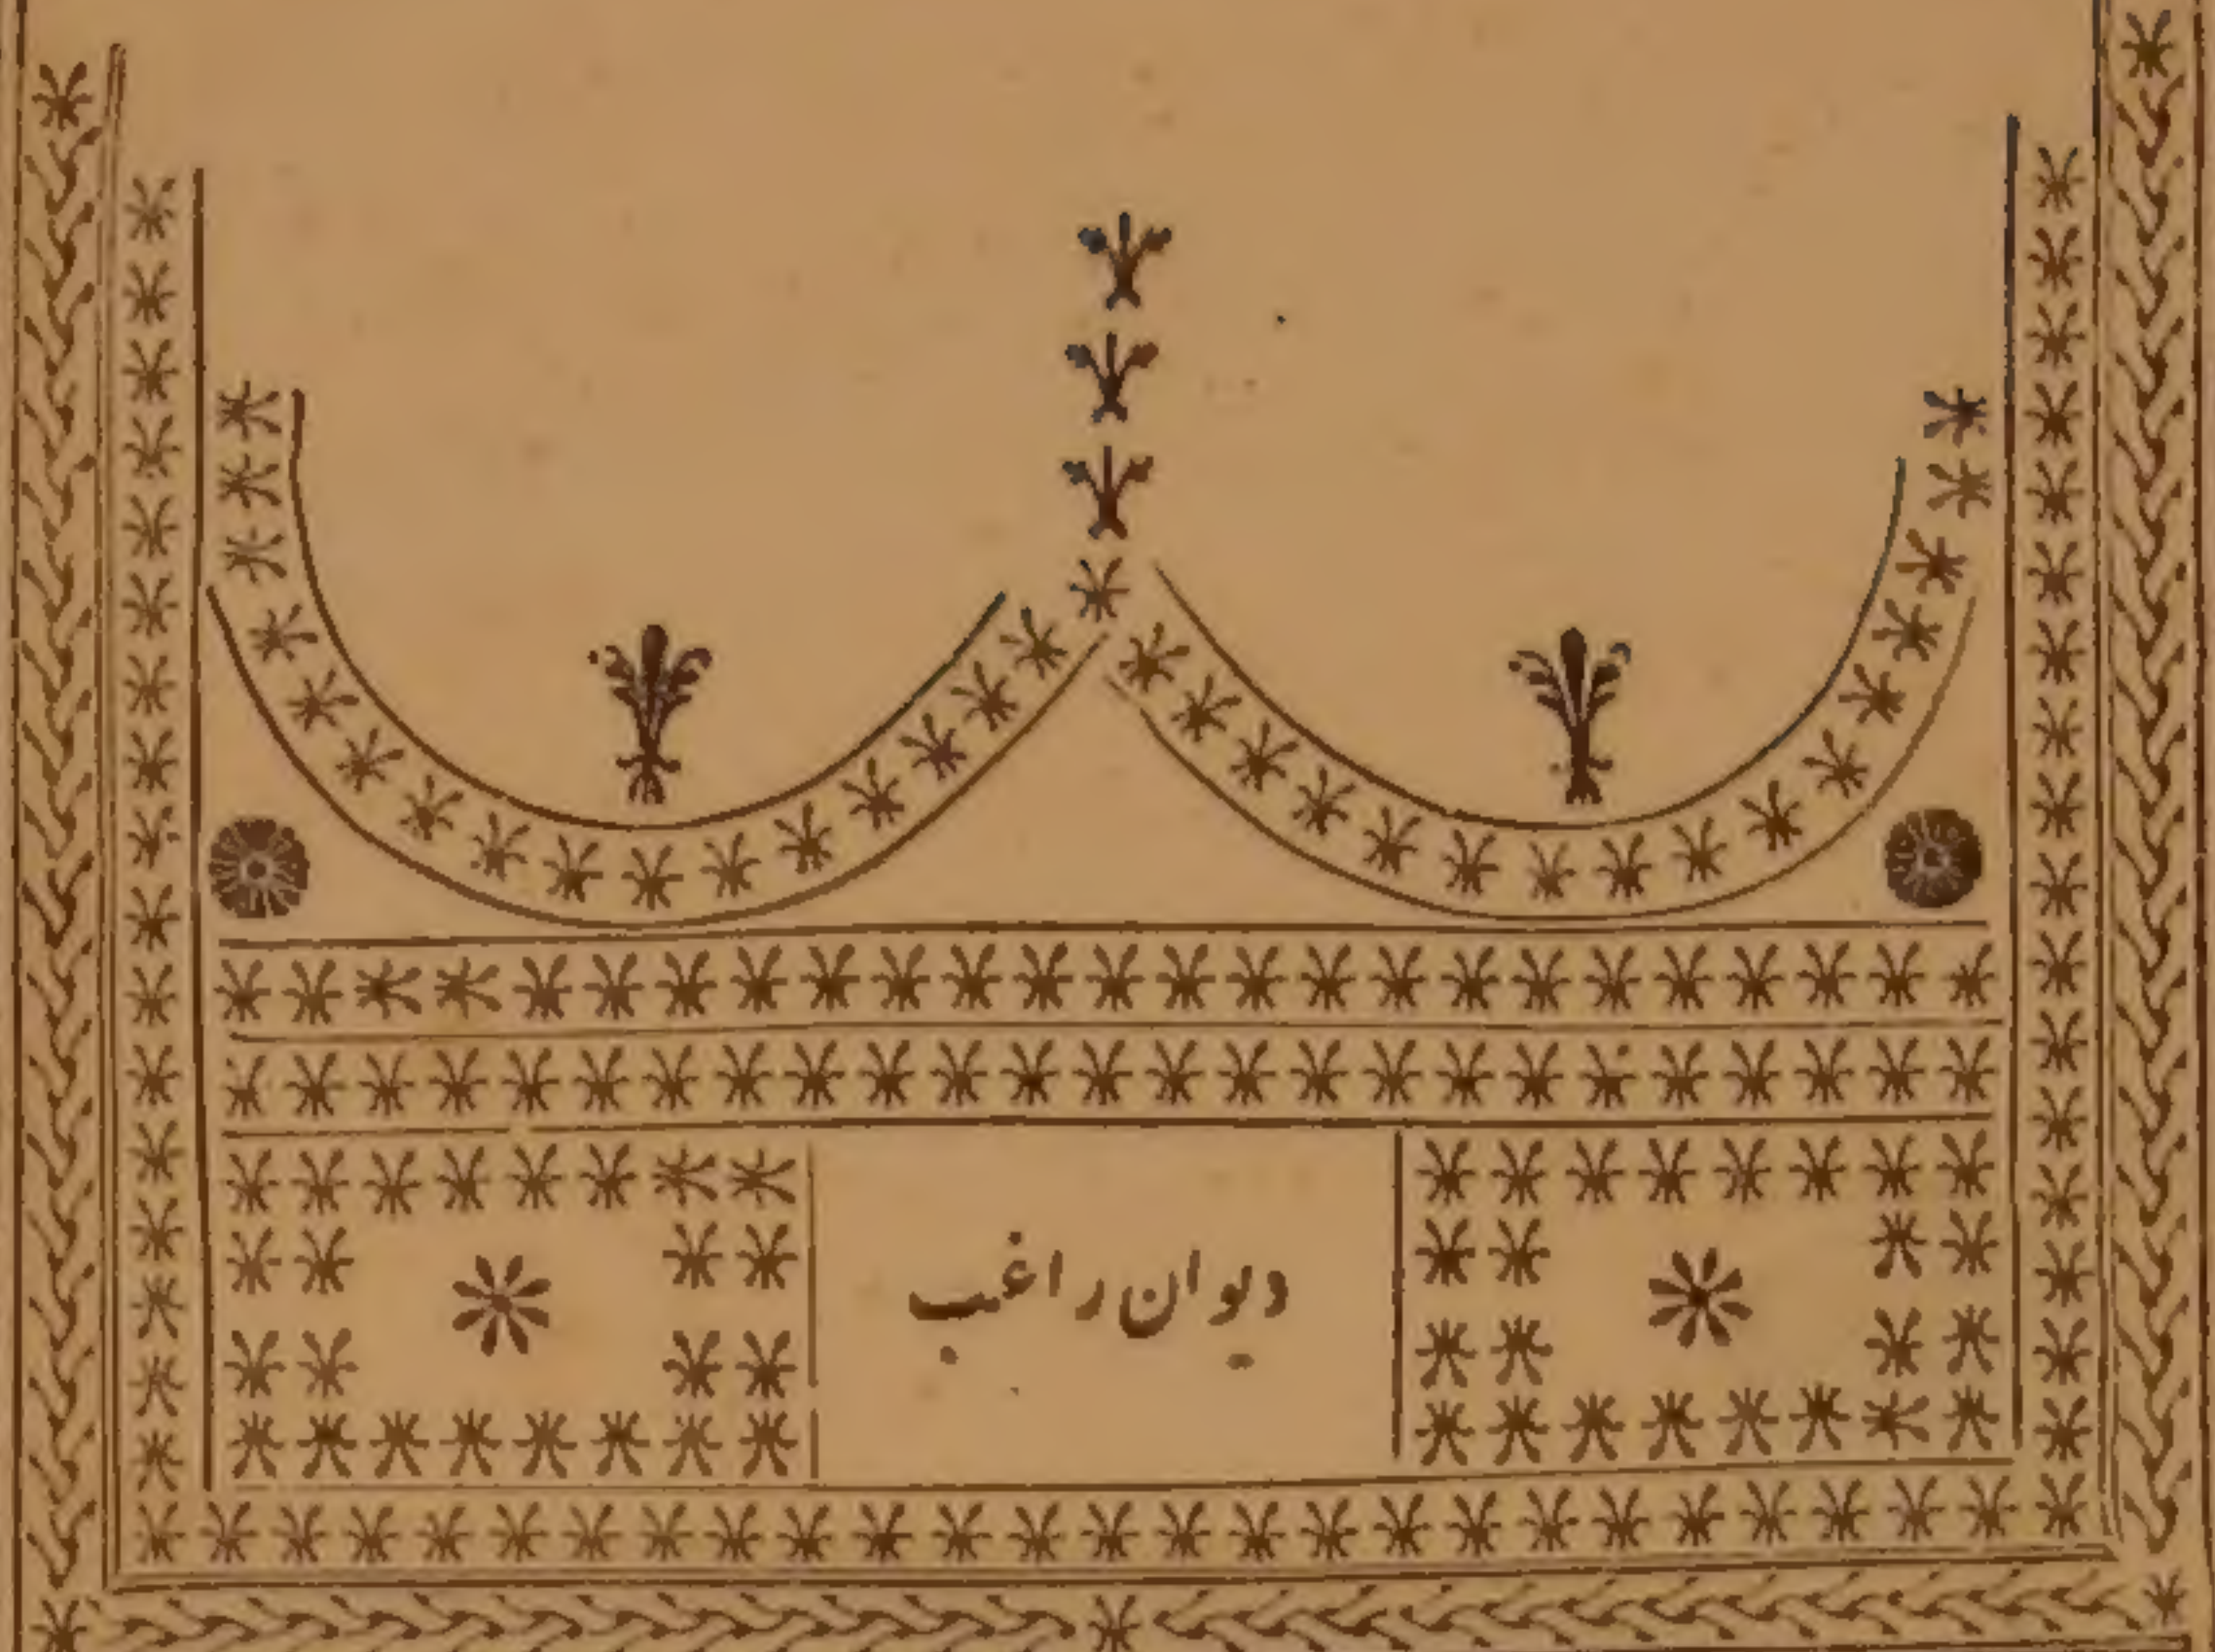 ديوان راغب